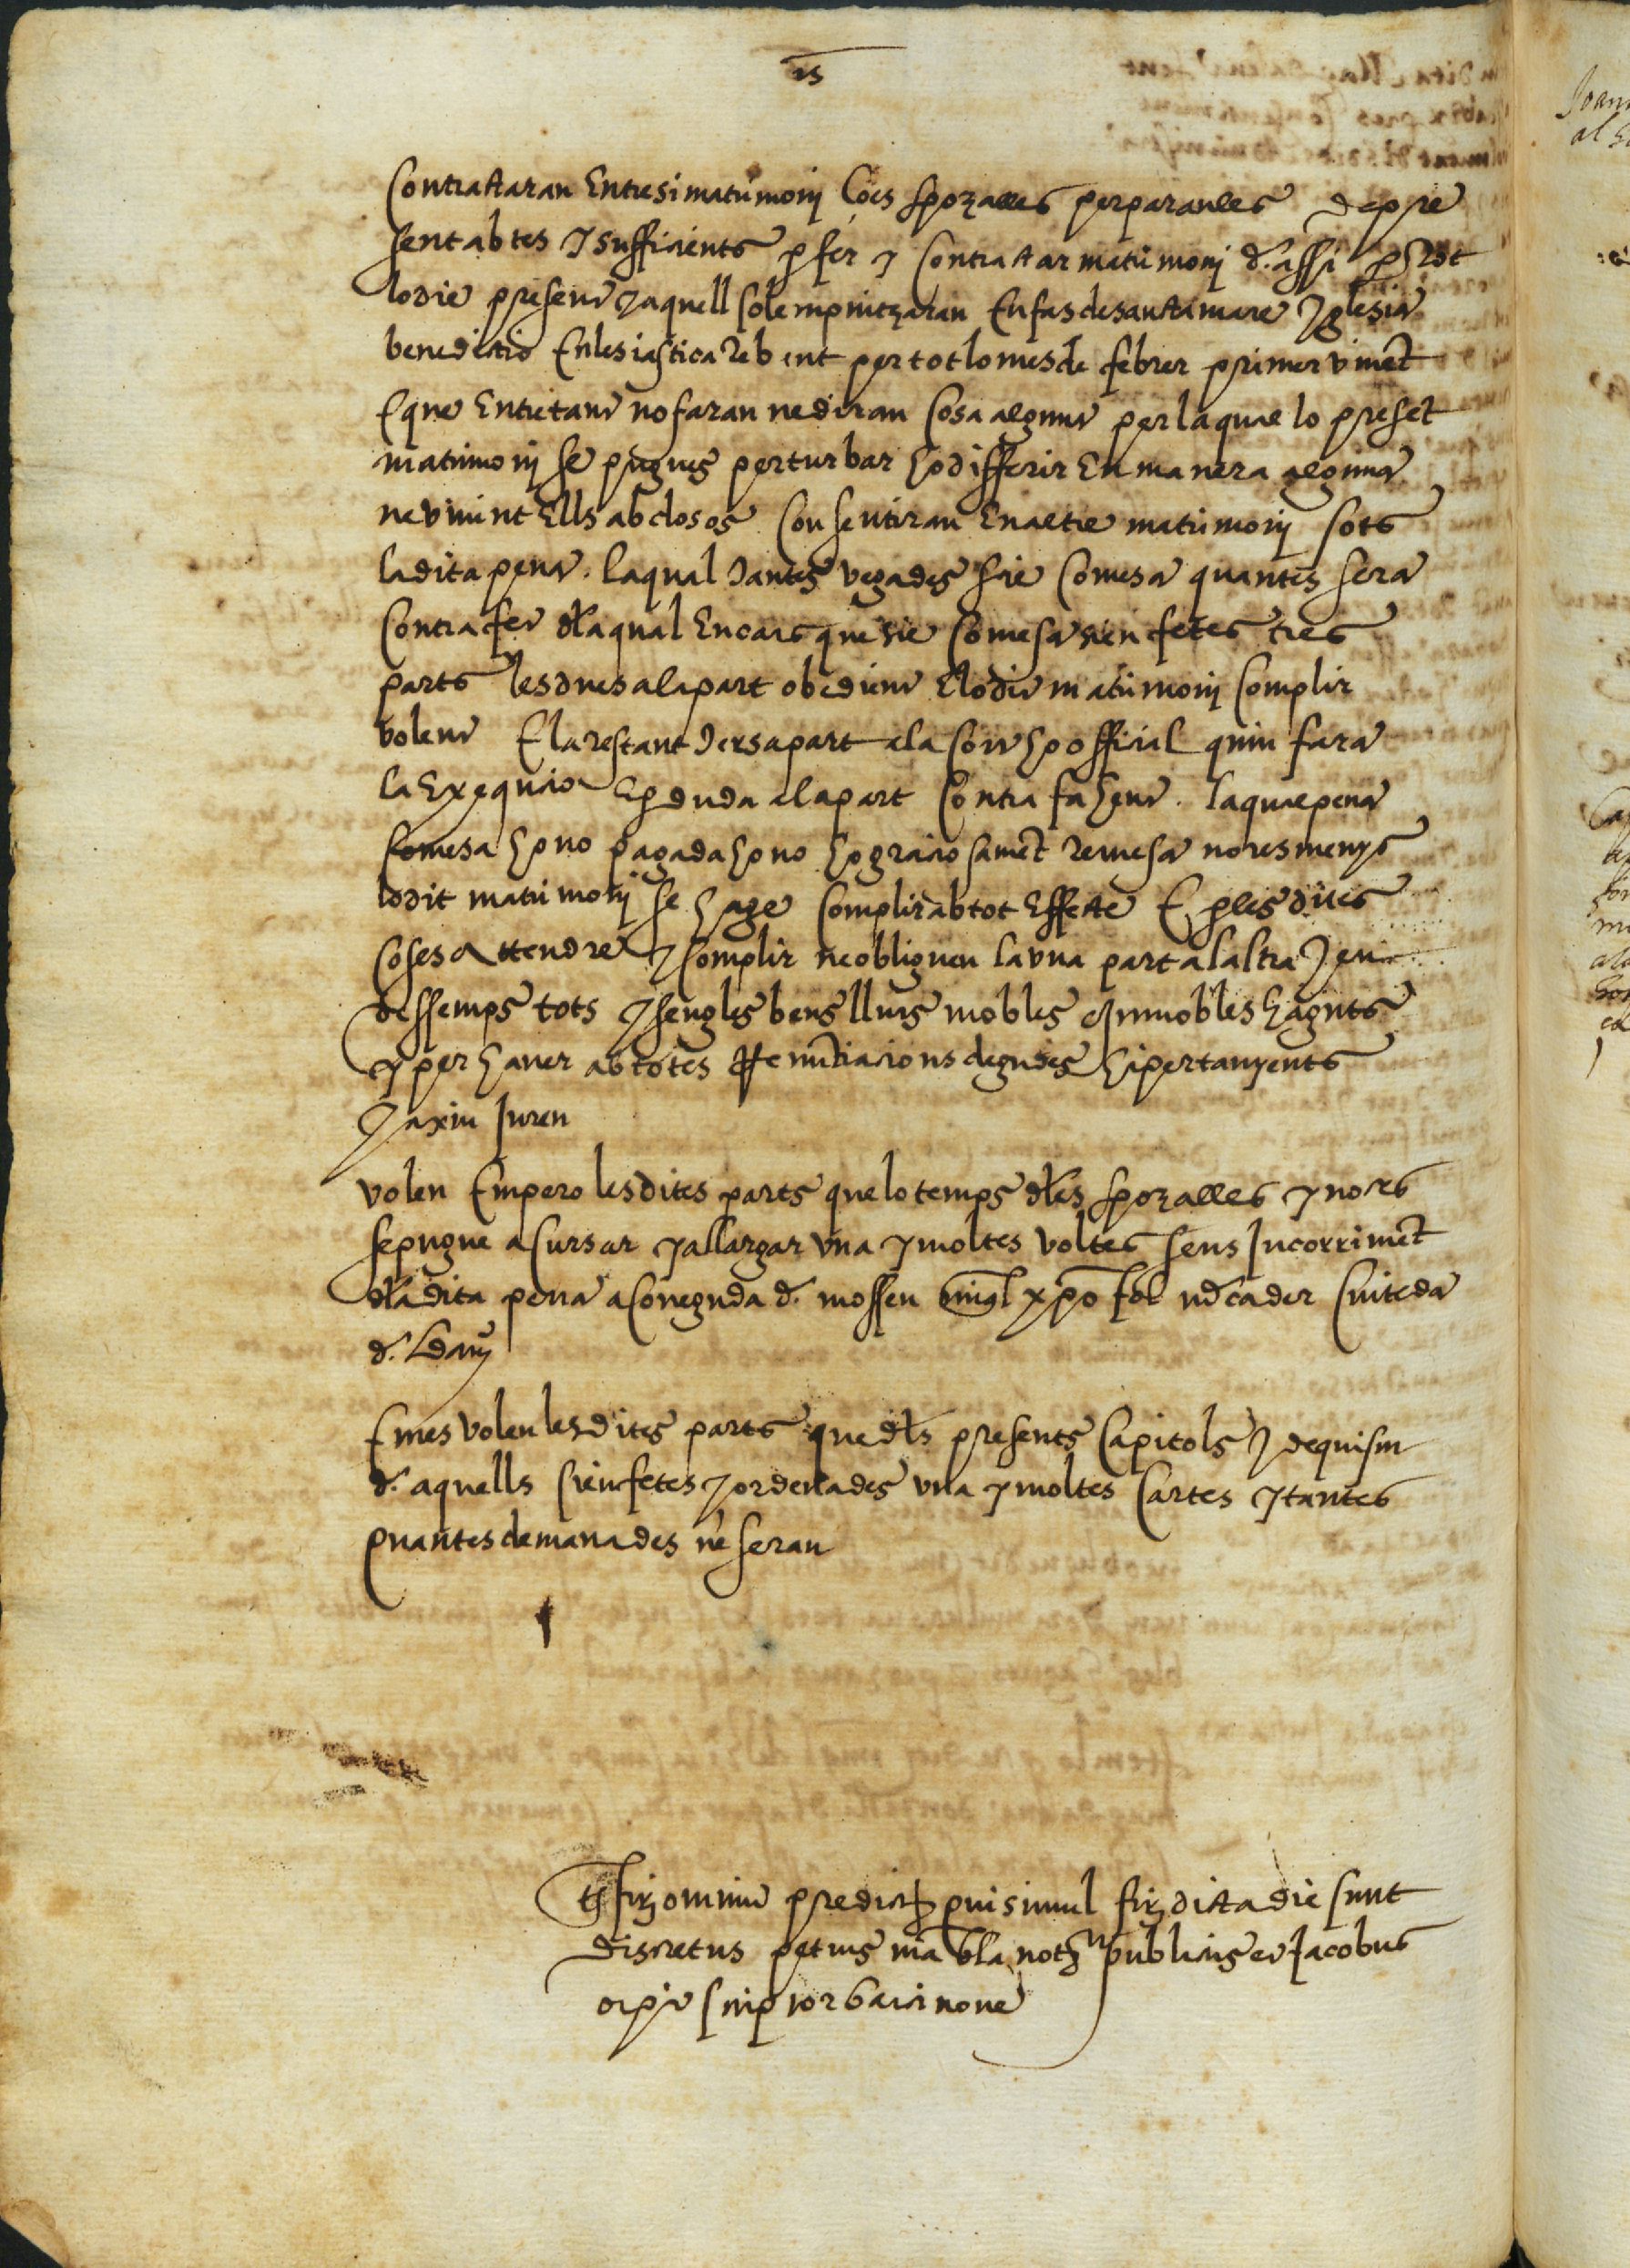 contractaran entre si matrimonij ço es sposalles per paraules de pre
sent abtes y sufficients per fer y contractar matrimoni d. assi per tot
lo die present y aquell solempnitzaran en fas de santa mare yglesia
benedictio ecclesiastica rebent per tot lo mes de febrer primer vinent
E que entretant no faran ne diran cosa alguna per la qual lo preset
matrimonij se pugues perturbar ho differir en manera alguna
ne vivint ells abdosos consentiran en altre matrimonij sots
la dita pena. la qual tantes vegades sie comesa quantes sera
contrafet dla qual en cars que sie comesa sien fetes tres
parts les dues a la part obedient e lo dit matrimonij complir
volent E la restant tersa part a la cort ho official quin fara
la exequcio Es duda a la part contrafahent. la qual pena
comesa ho no pagada ho no ho graciosament remesa no res menys
lo dit matrimonij se hage complir ab tot effecte E per les dites
coses attendre y complir ne obliguen la una part a la altra y en
dessemps tots y sengles bens llurs mobles e inmobles haguts
y per haver ab totes renunciacions degudes hi pertanyents
y axiu juren
volen empero les dites parts que lo temps dles sposalles y noces
se pugue acursar y allargar una y moltes voltes sens incorriment
dla dita pena a coneguda d. mossen xpo fol mercader ciuteda
d.
E mes volen les dites parts que dls presents capitols y dequiscu
d. aquells sien fetes y ordenades una y moltes cartes y tantes
quantes demanades ne seran
ts firme omnium predictorum qui simul firma dicta die sunt
discretus petrus notz publicus et Jacobus
scriptor barcinone